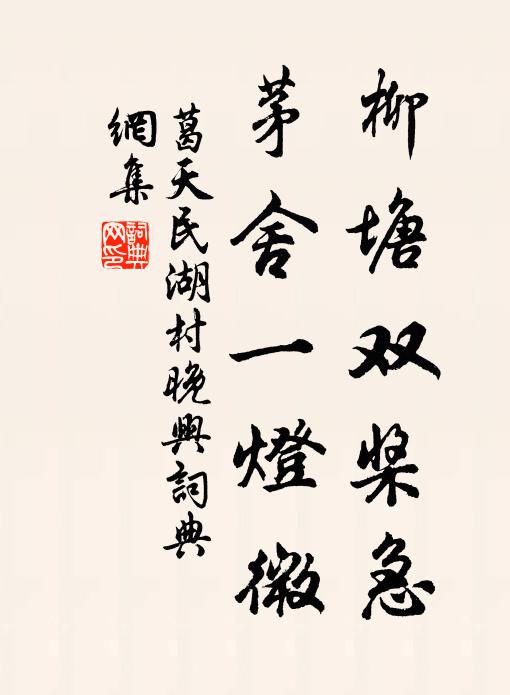 柳塘双桨急
茅舍一燈微
葛天民湖村晚興詞典
網集
詞典
网印